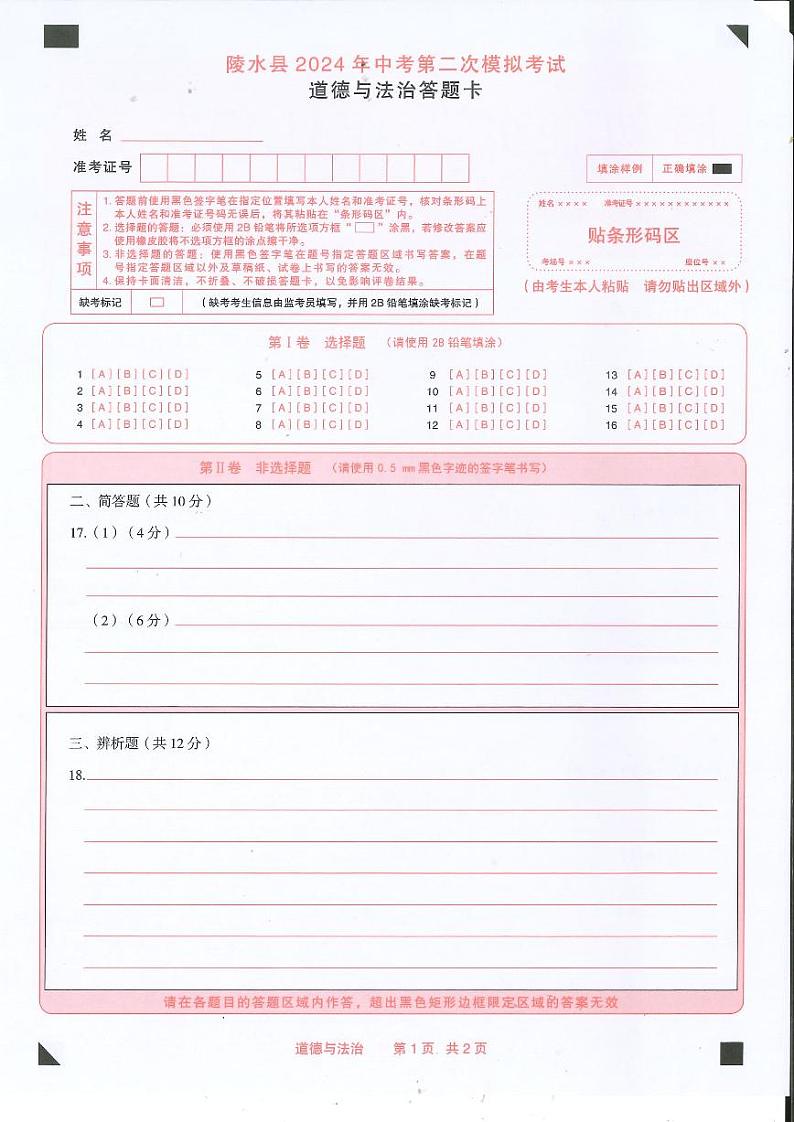 陵水县 2024 年中考第二次模拟考试
道德与法治答题卡
姓 名
准考证号
填涂样例 正确填涂
注意事项
1. 答题前使用黑色签字笔在指定位置填写本人姓名和准考证号，核对条形码上
本人姓名和准考证号码无误后，将其粘贴在“条形码区”内。
2. 选择题的答题：必须使用 2B 铅笔将所选项方框“ ”涂黑，若修改答案应
使用橡皮胶将不选项方框的涂点擦干净。
3. 非选择题的答题：使用黑色签字笔在题号指定答题区域书写答案，在题
号指定答题区域以外及草稿纸、试卷上书写的答案无效。
4. 保持卡面清洁，不折叠、不破损答题卡，以免影响评卷结果。
缺考标记 （缺考考生信息由监考员填写，并用 2B 铅笔填涂缺考标记）
姓名 ×××× 准考证号 ××××××××××××
贴条形码区
考场号 ××× 座位号 ××
（由考生本人粘贴 请勿贴出区域外）
第Ⅰ卷 选择题 （请使用 2B 铅笔填涂）
1 [A] [B] [C] [D] 5 [A] [B] [C] [D] 9 [A] [B] [C] [D] 13 [A] [B] [C] [D]
2 [A] [B] [C] [D] 6 [A] [B] [C] [D] 10 [A] [B] [C] [D] 14 [A] [B] [C] [D]
3 [A] [B] [C] [D] 7 [A] [B] [C] [D] 11 [A] [B] [C] [D] 15 [A] [B] [C] [D]
4 [A] [B] [C] [D] 8 [A] [B] [C] [D] 12 [A] [B] [C] [D] 16 [A] [B] [C] [D]
第Ⅱ卷 非选择题 （请使用 0.5 mm 黑色字迹的签字笔书写）
二、简答题（共 10 分）
17.（1）（4 分）
（2）（6 分）
三、辨析题（共 12 分）
18.
请在各题目的答题区域内作答，超出黑色矩形边框限定区域的答案无效
道德与法治 第 1 页 共 2 页